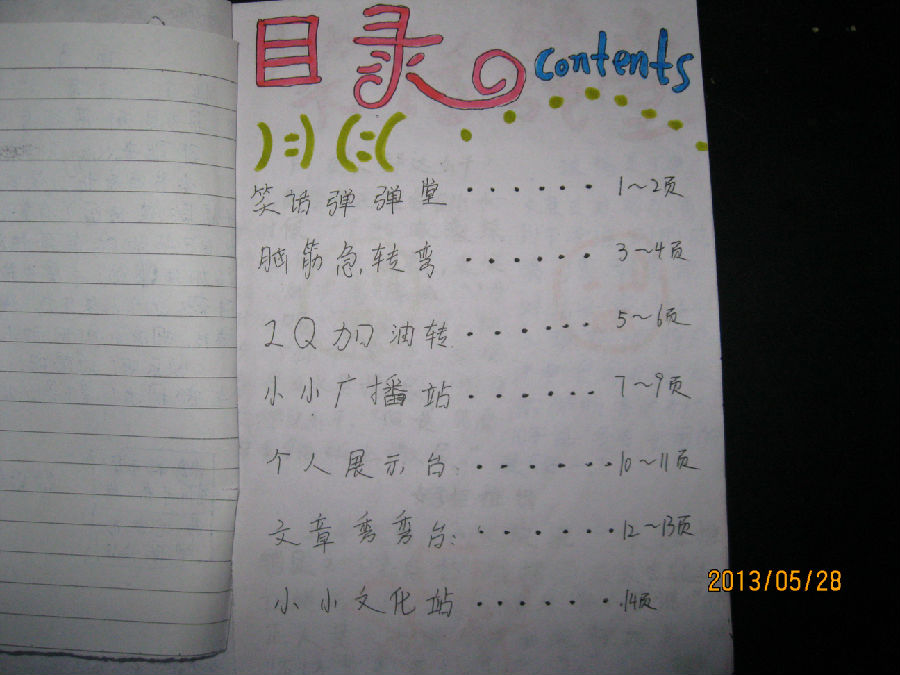 目录 contents
):) (:(
笑话弹弹堂 ······ 1~2页
脑筋急转弯 ······ 3~4页
IQ加油转 ······ 5~6页
小小广播站 ······ 7~9页
个人展示台: ······ 10~11页
文章弯弯台: ······· 12~13页
小小文化站 ······ 14页
2013/05/28